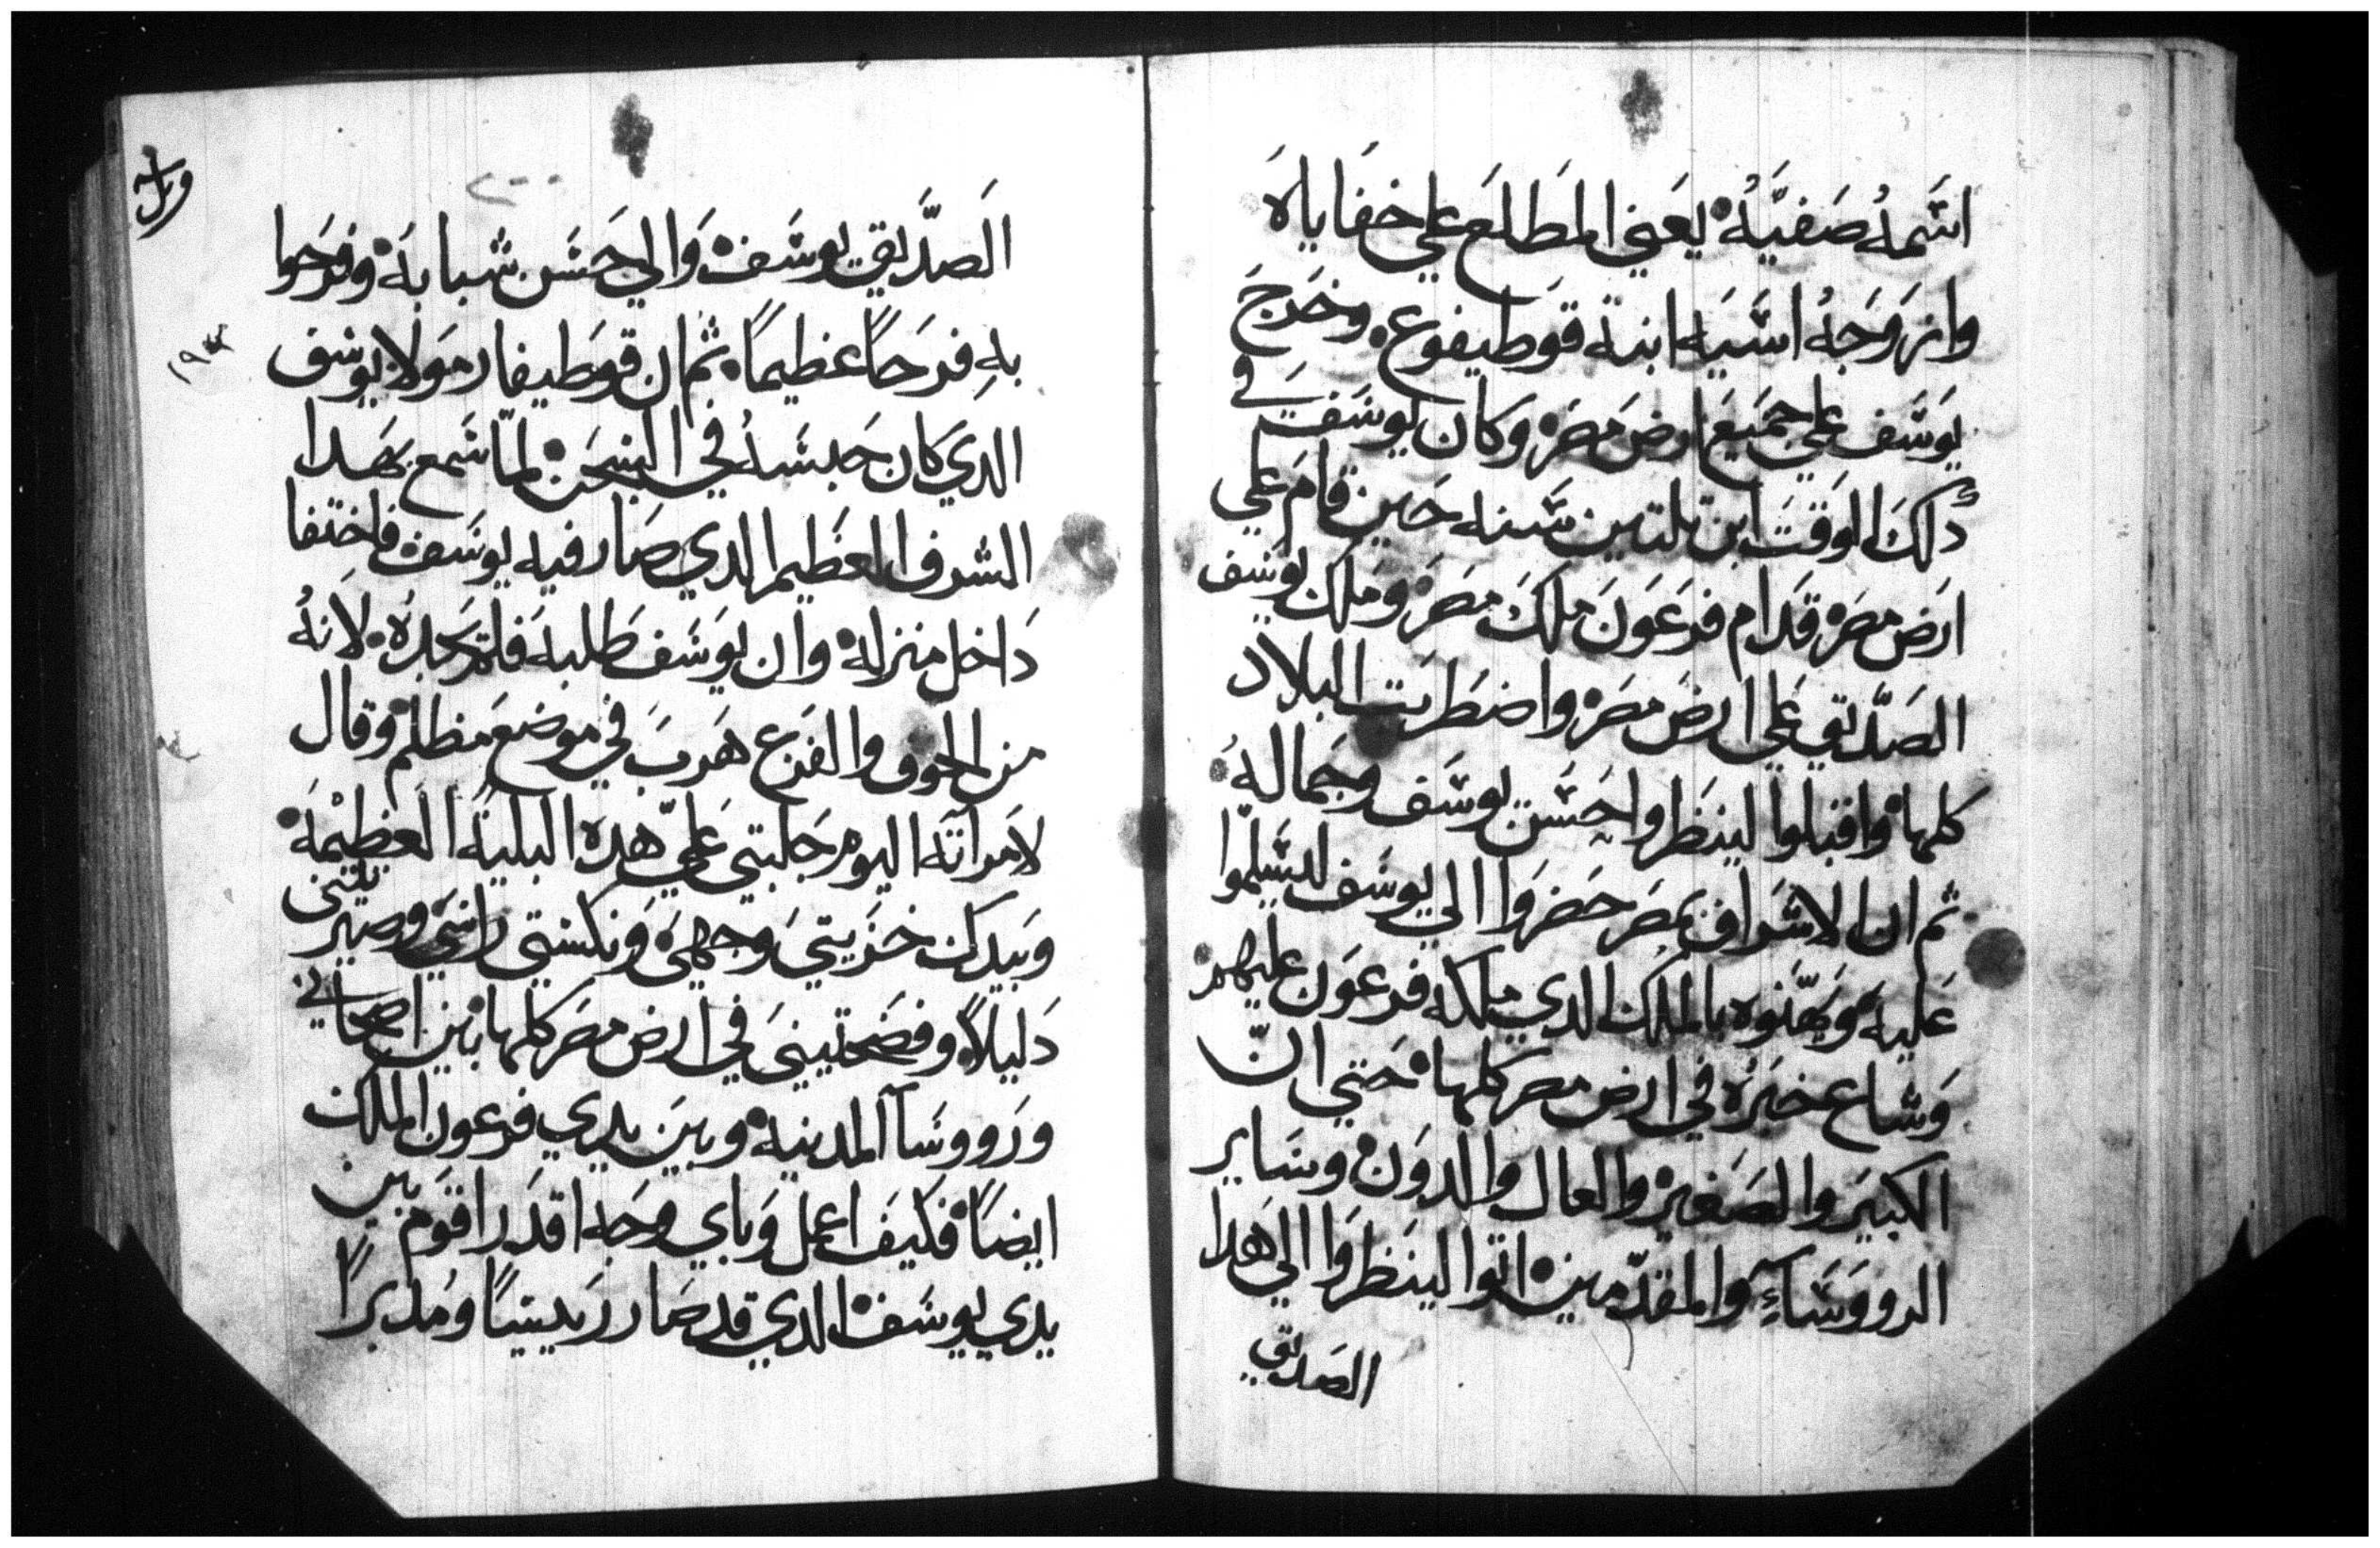 اسمه صفيه يعني المطلع علي خفاياه
وازوجه اسيه ابنة قوطيفوع وخرج
يوسف علي جميع ارض مصر وكان يوسف في
دلك الوقت ابن تلتين سنه حين قام علي
ارض مصر قدام فرعون ملك مصر وملك يوسف
الصديق علي ارض مصر واضطربت البلاد
كلها واقبلوا لينظروا حسن يوسف وجماله
ثم ان الاشراف بمصر حضروا الي يوسف ليسلموا
عليه ويهنوه بالملك الدي ملكه فرعون عليهم
وشاع خبره في ارض مصر كلها حتي ان
الكبير والصغير والعال والدون وساير
الرووساء والمقدمين اتوا لينظروا الي هدا
الصديق
الصديق يوسف والي حسن شبابه وفرحوا
به فرحاً عظيماً ثم ان قوطيفار مولا يوسف
الدي كان حبسه في السجن لما سمع بهدا
الشرف العظيم الدي صار فيه يوسف فاختفا
داخل منزله وان يوسف طلبه فلم يجده لانه
من الخوف والفزع هرب في موضع مظلم وقال
لامراته اليوم جلبتي علي هده البلية العظيمه
وبيدك خزيتي وجهي ونكستي راسي وصيرتيني
دليلاً وفضحتيني في ارض مصر كلها بين اصحابي
ورووسا المدينه وبين يدي فرعون الملك
ايضاً فكيف اعمل وباي وجه اقدر اقوم بين
يدي يوسف الدي قد صار رييساً ومدبراً
١٩٣